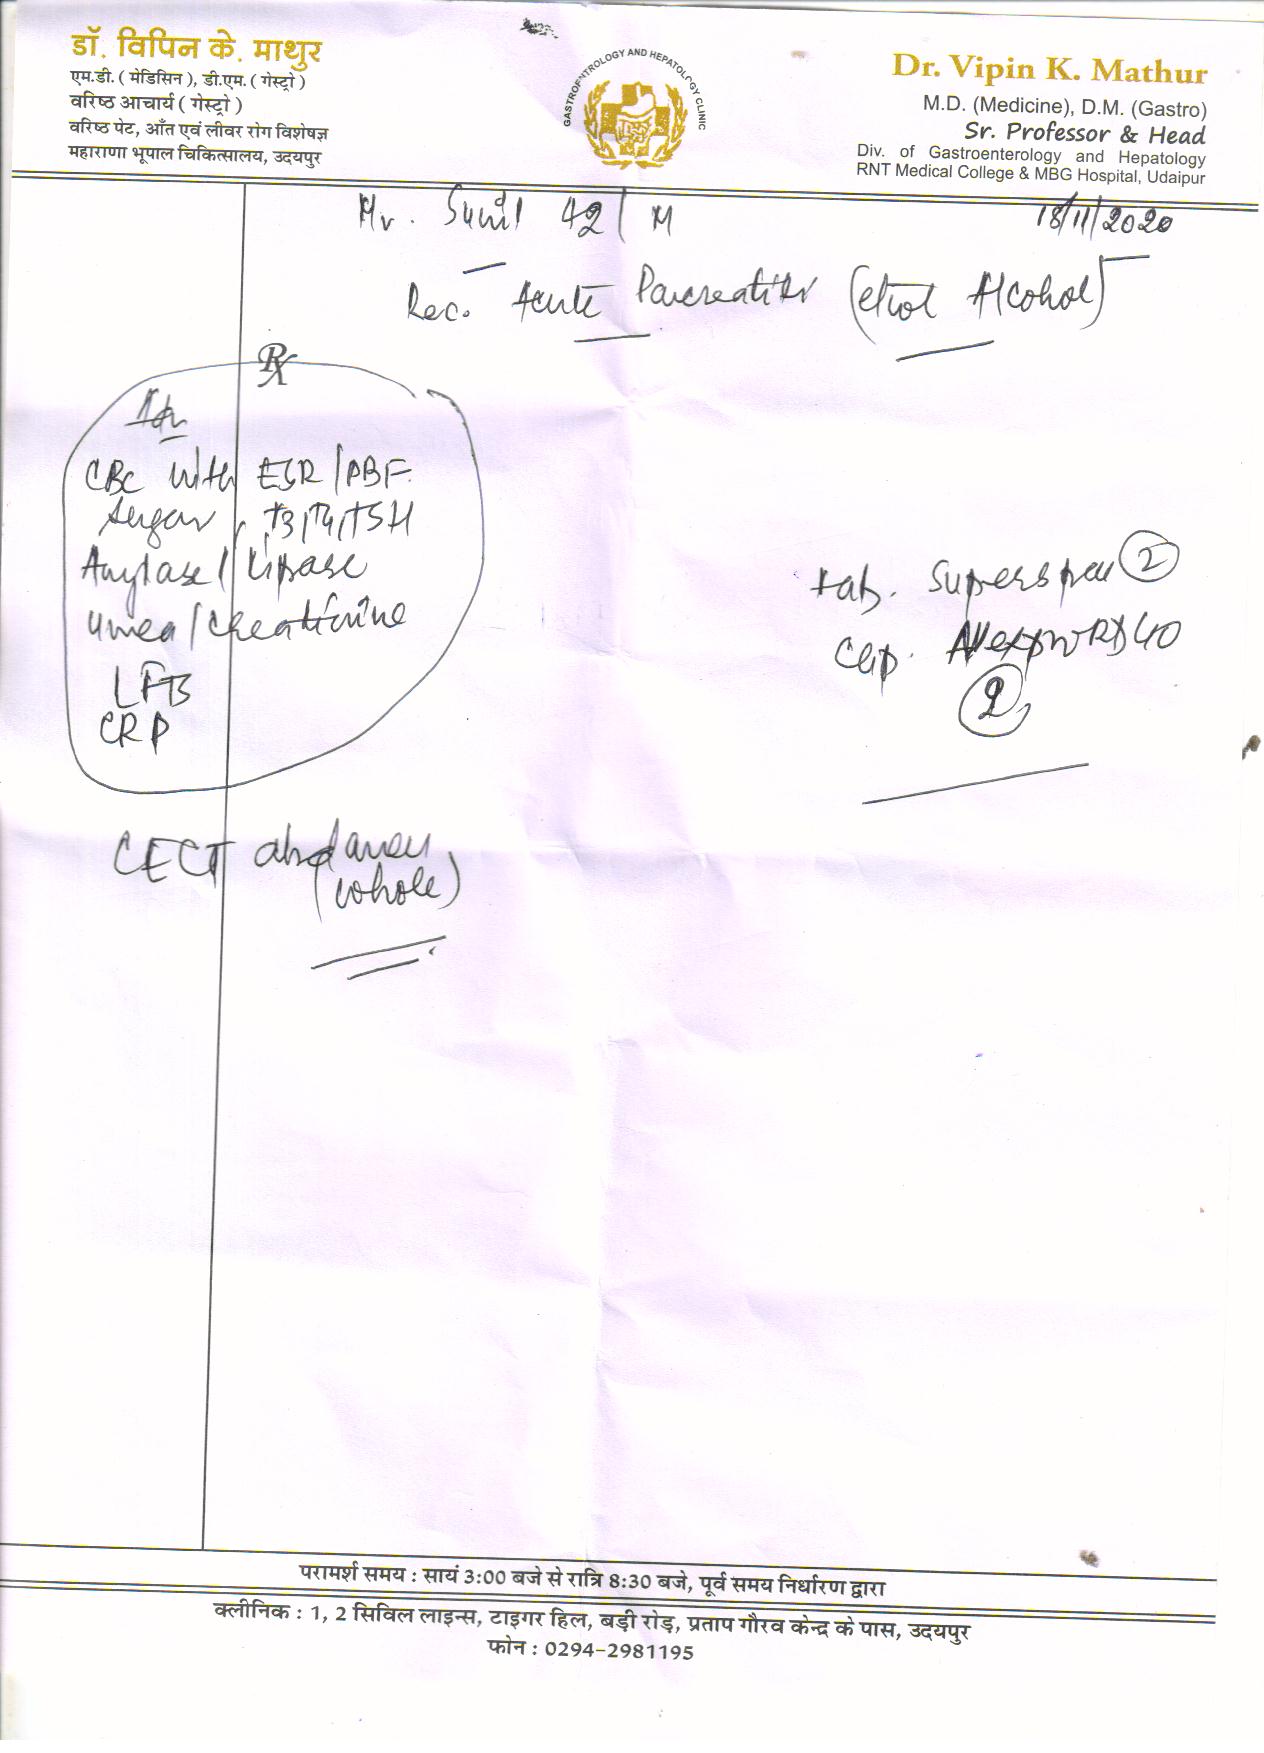 डॉ. विपिन के. माथुर
एम.डी. ( मेडिसिन ), डी.एम. ( गेस्ट्रो )
वरिष्ठ आचार्य ( गेस्ट्रो )
वरिष्ठ पेट, आँत एवं लीवर रोग विशेषज्ञ
महाराणा भूपाल चिकित्सालय, उदयपुर
GASTROENTROLOGY AND HEPATOLOGY CLINIC
Dr. Vipin K. Mathur
M.D. (Medicine), D.M. (Gastro)
Sr. Professor & Head
Div. of Gastroenterology and Hepatology
RNT Medical College & MBG Hospital, Udaipur
Mr. Sunil 42/M
18/11/2020
Rec. Acute Pancreatitis (etiol Alcohol)
Rx
CBC with ESR/PBF
Sugar, T3/T4/TSH
Amylase/Lipase
Urea/Creatinine
LFTs
CRP
tab. 2
Cap. RD 40
2
CECT abdomen
(whole)
परामर्श समय : सायं 3:00 बजे से रात्रि 8:30 बजे, पूर्व समय निर्धारण द्वारा
क्लीनिक : 1, 2 सिविल लाइन्स, टाइगर हिल, बड़ी रोड़, प्रताप गौरव केन्द्र के पास, उदयपुर
फोन : 0294-2981195